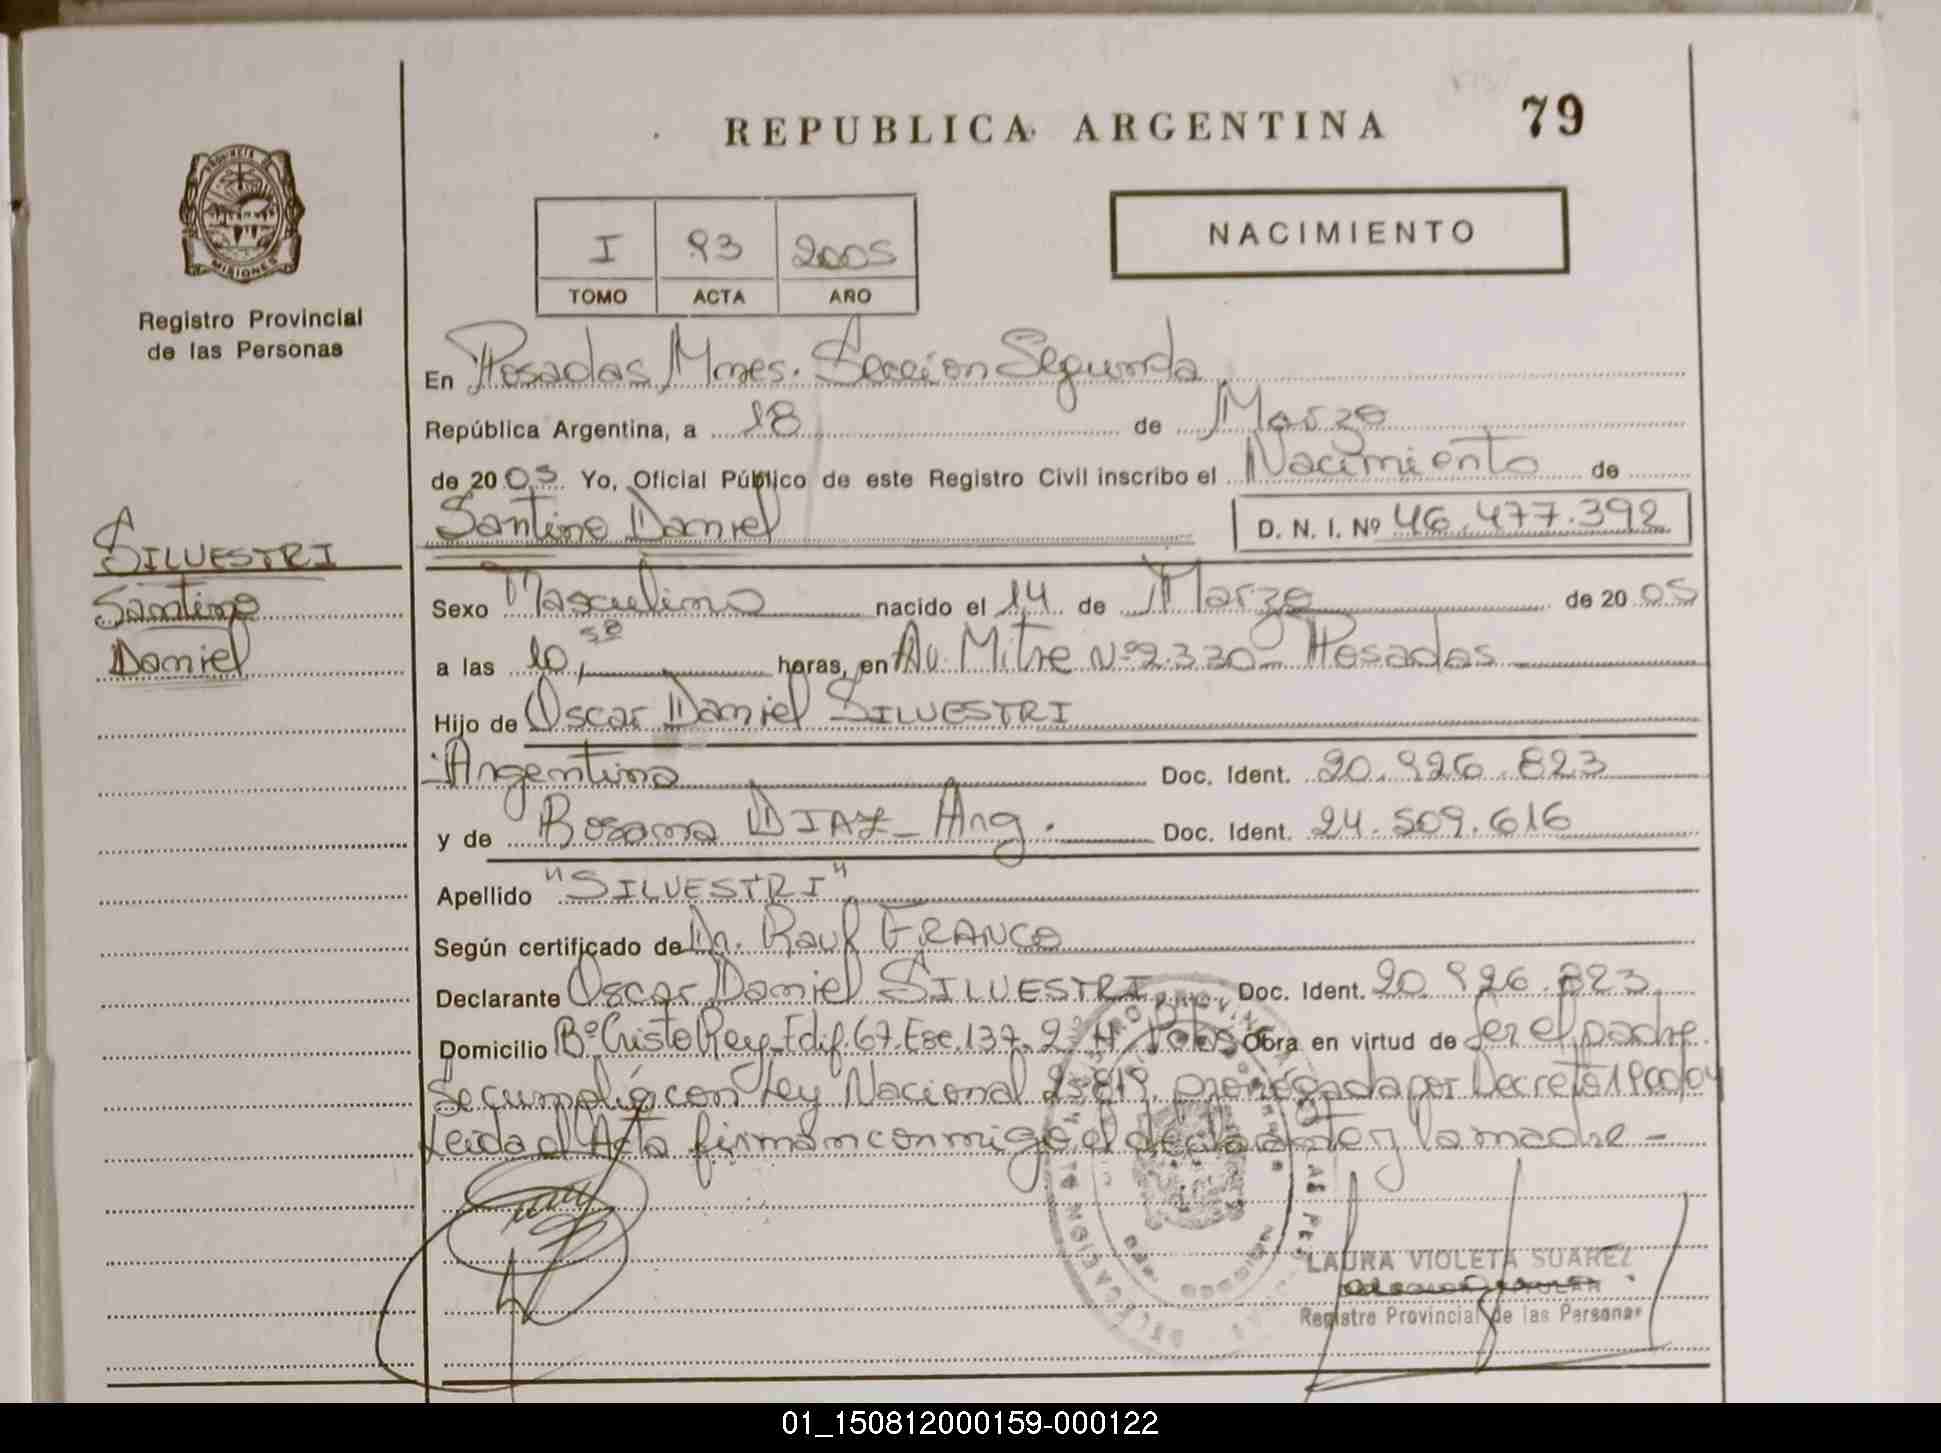 REPUBLICA ARGENTINA
79
PROVINCIA DE
MISIONES
Registro Provincial
de las Personas
I 93 2005
TOMO ACTA AÑO
NACIMIENTO
En Posadas Mnes. Seccion Segunda
República Argentina, a 18 de Marzo
de 2005 Yo, Oficial Público de este Registro Civil inscribo el Nacimiento de
Santino Daniel
D. N. I. Nº 46.477.392
SILVESTRI
Santino
Daniel
Sexo Masculino nacido el 14 de Marzo de 2005
a las 10, horas, en Av. Mitre Nº 2.330 - Posadas
Hijo de Oscar Daniel SILVESTRI
Argentino Doc. Ident. 20.926.823
y de Rosana DIAZ - Arg. Doc. Ident. 24.509.616
Apellido "SILVESTRI"
Según certificado de Dr. Raul FRANCO
Declarante Oscar Daniel SILVESTRI Doc. Ident. 20.926.823
Domicilio Bº Cristo Rey - Edif. 67. Esc. 137. 2º H Obra en virtud de ser el padre.
Se cumplió con Ley Nacional 25.819. prorrogada por Decreto
Leida el Acta firman conmigo el declarante y la madre -
LAURA VIOLETA SUAREZ
Registro Provincial de las Personas
01_150812000159-000122